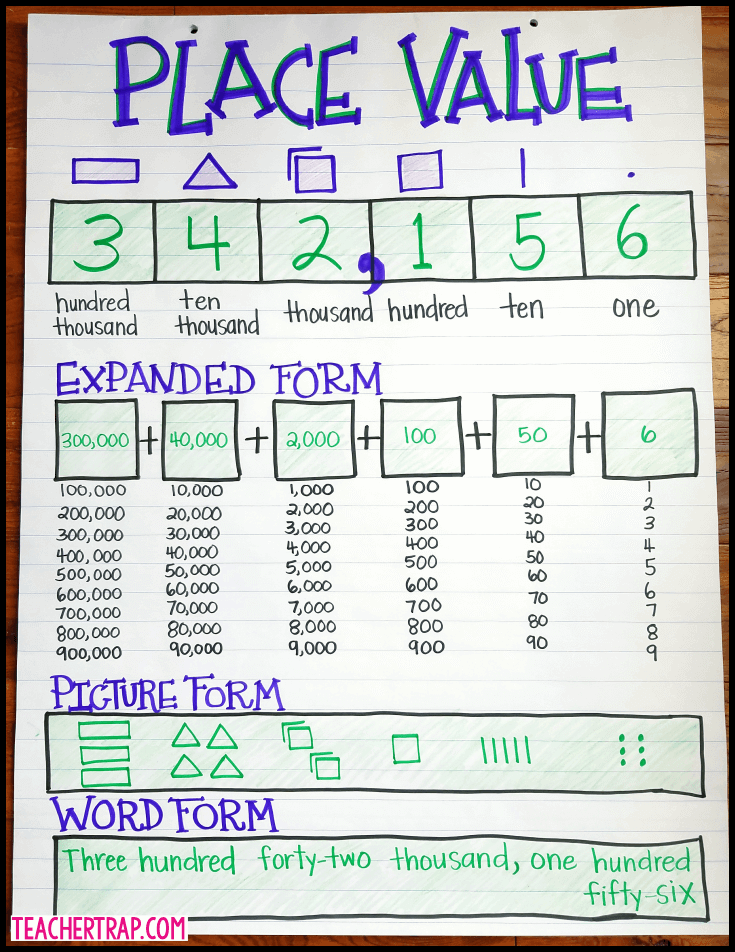 PLACE VALUE
3 4 2, 1 5 6
hundred thousand ten thousand thousand hundred ten one
EXPANDED FORM
300,000 + 40,000 + 2,000 + 100 + 50 + 6
100,000 10,000 1,000 100 10 1
200,000 20,000 2,000 200 20 2
300,000 30,000 3,000 300 30 3
400,000 40,000 4,000 400 40 4
500,000 50,000 5,000 500 50 5
600,000 60,000 6,000 600 60 6
700,000 70,000 7,000 700 70 7
800,000 80,000 8,000 800 80 8
900,000 90,000 9,000 900 90 9
PICTURE FORM
WORD FORM
Three hundred forty-two thousand, one hundred
fifty-six
TEACHERTRAP.COM